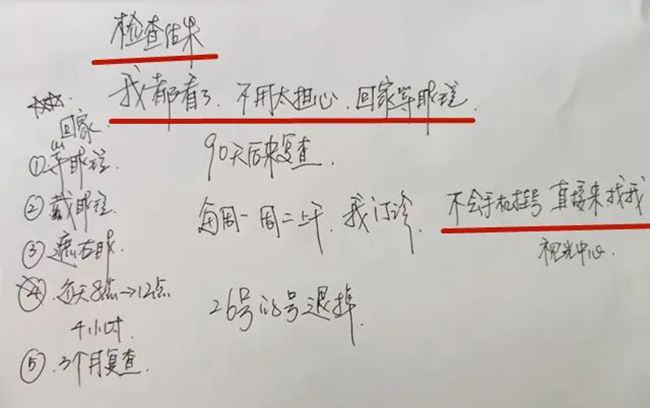 检查结果
我都看了.不用太担心.回家等眼镜.
☆☆☆
回家
①等眼镜.
②戴眼镜.
③遮右眼.
④.每天8点→12点
4小时.
⑤.3个月复查.
90天后来复查.
每周一周二上午.我门诊.
不会手机挂号 直接来找我
视光中心.
26号的号退掉.